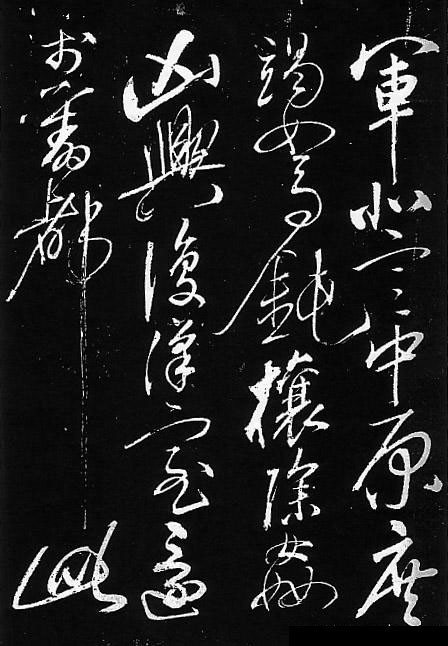 軍北定中原庶
竭駑鈍攘除姦
凶興復漢室還
於舊都此